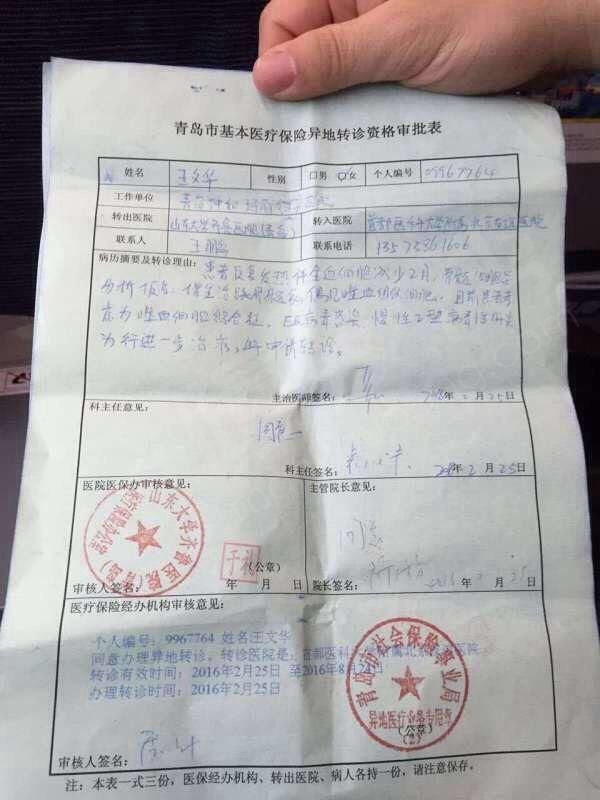 青岛市基本医疗保险异地转诊资格审批表
姓名 王文华 性别 口男 口女 个人编号 09967764
工作单位
转出医院 山东大学齐鲁医院(青岛) 转入医院 首都医科大学附属北京友谊医院
联系人 王 联系电话
病历摘要及转诊理由：患者反复发热伴全血细胞减少2月，骨髓细胞
分析 偶见噬血细胞。目前患者考
虑为噬血细胞综合征，EB病毒感染，慢性乙型病毒性肝炎
为行进一步治疗，申请转诊。
主治医师签名： 年2月25日
科主任意见：
同意
科主任签名： 年2月25日
医院医保办审核意见： 主管院长意见：
山东大学齐鲁医院(青岛)
医疗保险办公室
同意
（公章）
审核人签名： 年 月 日 院长签名： 2016. 25
医疗保险经办机构审核意见：
个人编号：9967764 姓名王文华
同意办理异地转诊，转诊医院是：首都医科大学附属北京友谊医院
转诊有效时间：2016年2月25日 至2016年8月24日
办理转诊时间：2016年2月25日
青岛市社会保险事业局
异地医疗业务专用章
(2)
（公章）
审核人签名：
注：本表一式三份，医保经办机构、转出医院、病人各持一份，请注意保存。